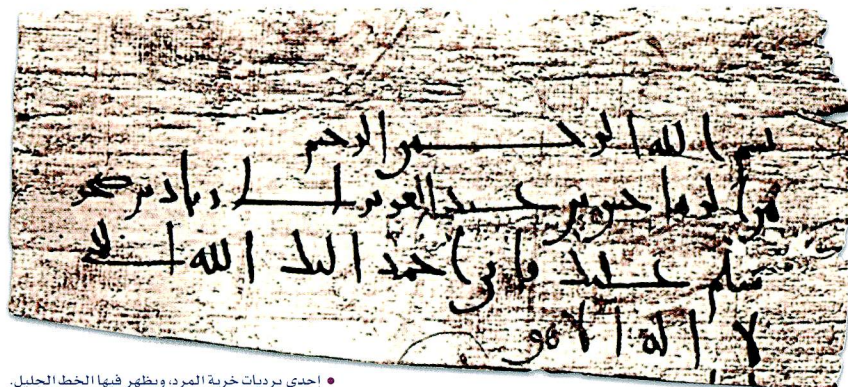 بسم الله الرحمن الرحيم
من بن عبد العزيز الى
سلم عليك فاني احمد اليك الله الذي
لا اله الا هو
• احدى برديات خربة المرد، ويظهر فيها الخط الجليل.